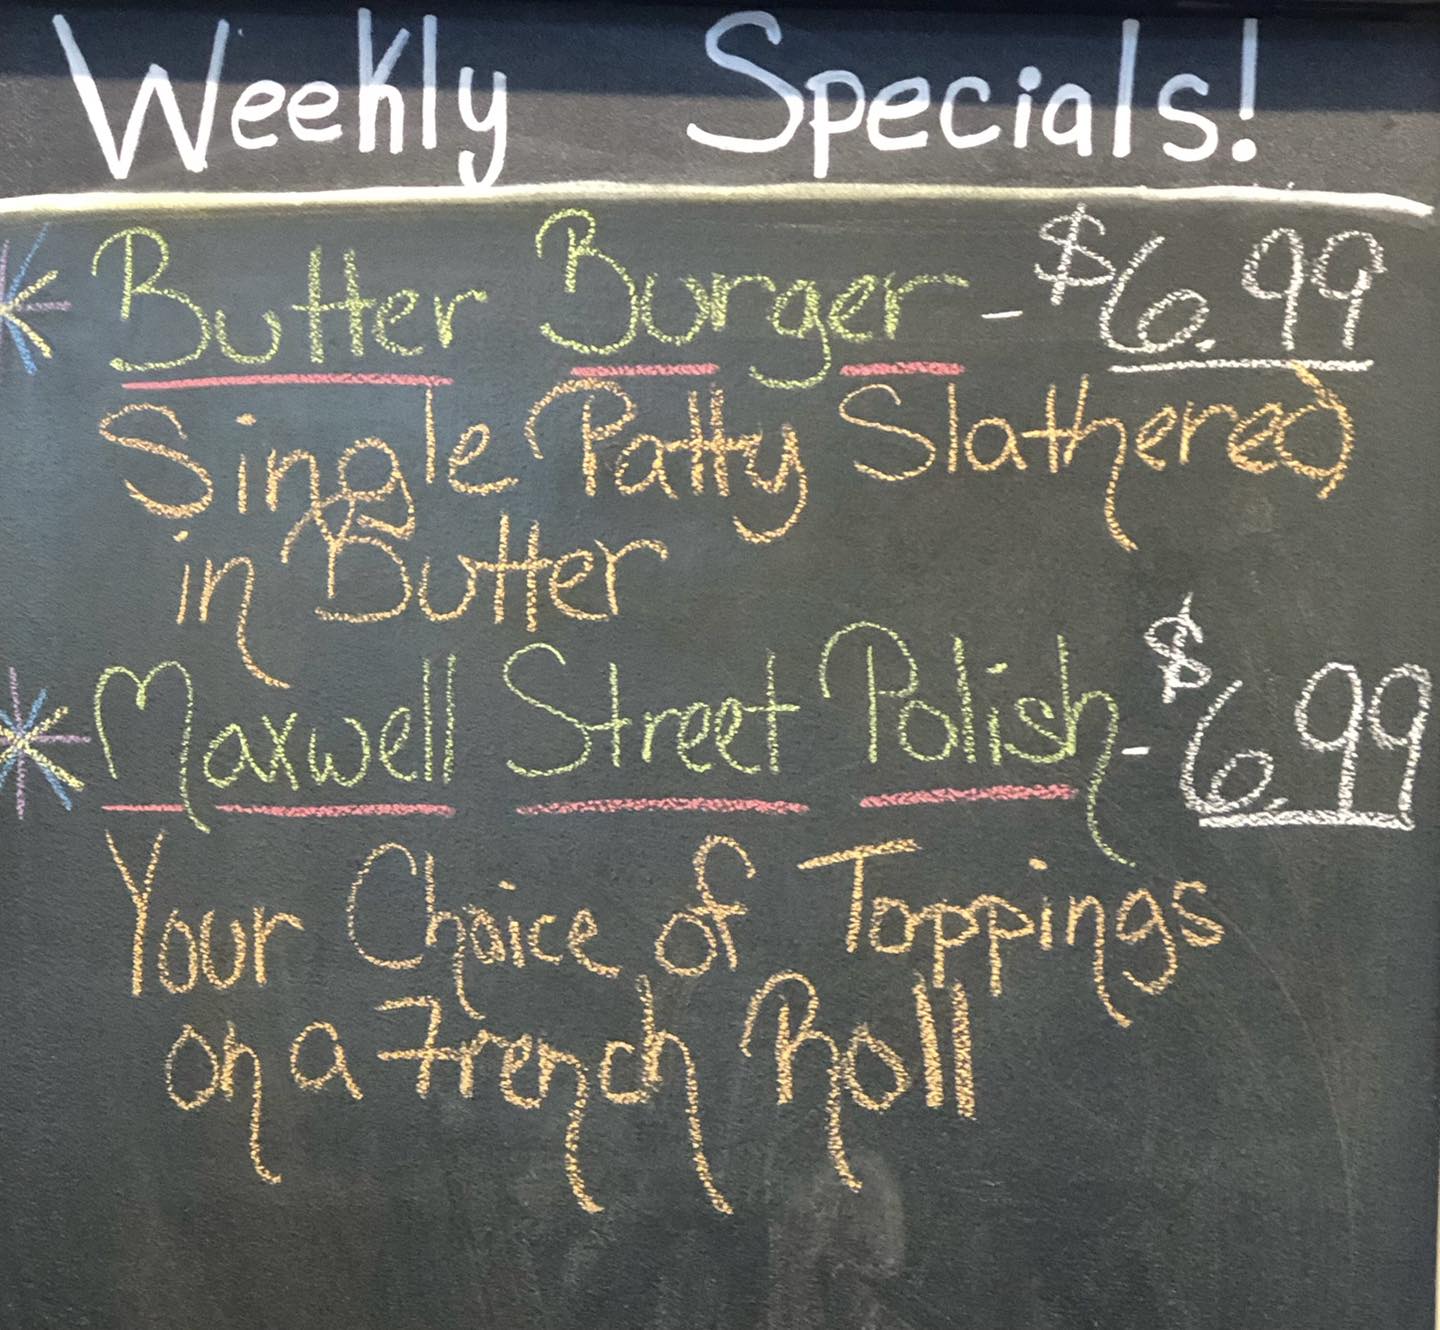 Weekly Specials!
Butter Burger - $6.99
Single Patty Slathered
in Butter
Maxwell Street Polish - $6.99
Your Choice of Toppings
on a French Roll